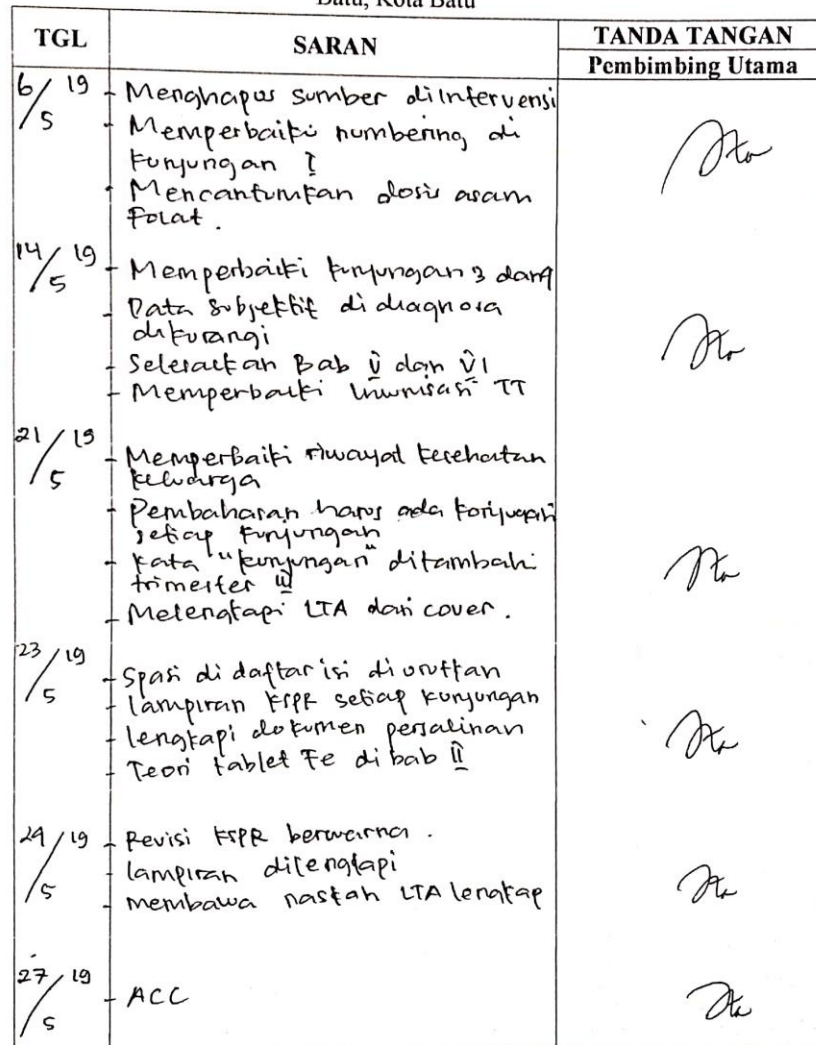 Batu, Kota Batu
TGL SARAN TANDA TANGAN
Pembimbing Utama
6/5 19 - Menghapus sumber diintervensi
- Memperbaiki numbering di
kunjungan I
- Mencantumkan dosis asam
Folat.
14/5 19 - Memperbaiki kunjungan 3 dan 4
- Data subjektif di diagnosa
dikurangi
- Selesaikan Bab V dan VI
- Memperbaiki imunisasi TT
21/5 19 - Memperbaiki riwayat kesehatan
keluarga
- Pembahasan harus ada
setiap kunjungan
- kata "kunjungan" ditambahi
trimester III
- Melengkapi LTA dari cover.
23/5 19 - Spasi di daftar isi diurutkan
- lampiran KSPR setiap kunjungan
- lengkapi dokumen persalinan
- Teori tablet Fe di bab II
24/5 19 - Revisi KSPR berwarna.
- lampiran dilengkapi
- membawa naskah LTA lengkap
27/5 19 - ACC